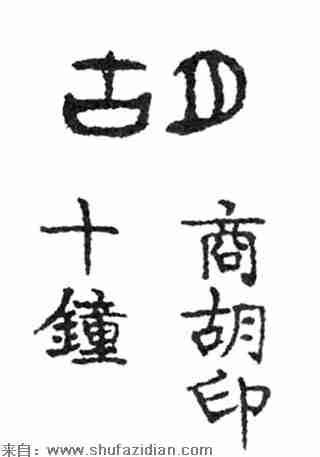 胡
商胡印
十鐘
来自：www.shufazidian.com